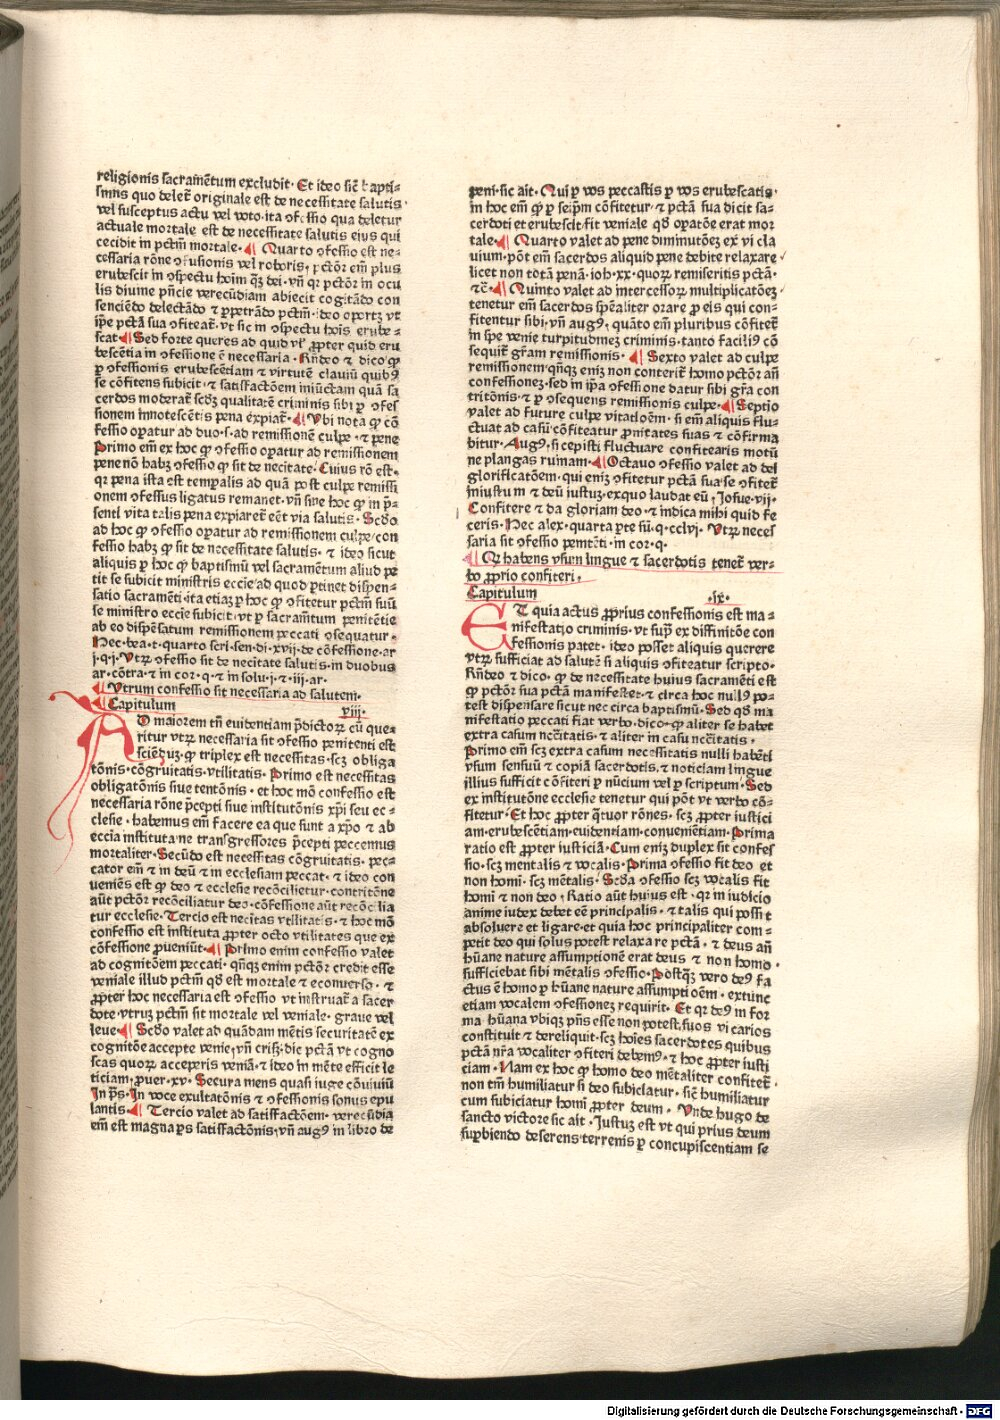 religionis sacramētum excludit· Et ideo sic̄ bapti⸗
smus quo delet̄ originale est de necessitate salutis
vel susceptus actu vel voto·ita ꝯfessio qua deletur
actuale mortale est de necessitate salutis eius qui
cecidit in pctm̄ mortale· ¶ Quarto ꝯfessio est ne⸗
cessaria rōne ꝯfusionis vel roboris, pctōr em̄ plus
erubescit in ꝯspectu hoīm q̄ꝫ dei· vn̄ qꝛ pctōr in ocu
lis diuine pn̄cie verecūdiam abiecit cogitādo con
senciēdo delectādo ⁊ ꝑpetrādo pctm̄·ideo oportꝫ vt
ip̄e pctā sua ꝯfiteat̄· vt sic in ꝯspectu hoīs erube⸗
scat·¶ Sed forte queres ad quid vl̄ ꝓpter quid eru
bescētia in ꝯfessione ē necessaria· Rn̄deo ⁊ dico ꝙ
ꝑ ꝯfessionis erubescētiam ⁊ virtutē clauiū quibꝰ
se cōfitens subicit·⁊ satisfactōem iniūctam quā sa
cerdos moderat̄ scdꝫ qualitatē criminis sibi ꝑ ꝯfes
sionem innotescētis pena expiat̄·¶ Vbi nota ꝙ cō
fessio oꝑatur ad duo·s·ad remissionē culpe·⁊ pene
Primo em̄ ex hoc ꝙ ꝯfessio oꝑatur ad remissionem
pene nō habꝫ ꝯfessio ꝙ sit de necitate· Cuius rō est·
qꝛ pena ista est temꝑalis ad quā post culpe remissi
onem ꝯfessus ligatus remanet· vn̄ sine hoc ꝙ in p̄⸗
senti vita talis pena expiaret̄ eēt via salutis· Scdo
ad hoc ꝙ ꝯfessio oꝑatur ad remissionem culpe/con
fessio habꝫ ꝙ sit de necessitate salutis· ⁊ ideo sicut
aliquis ꝑ hoc ꝙ baptismū vel sacramētum aliud pe
tit se subicit ministris eccie/ad quod ꝑtinet dispen⸗
satio sacramēti·ita etiaꝫ ꝑ hoc ꝙ ꝯfitetur pctm̄ suū
se ministro eccie subicit·vt ꝑ sacram̄tum penitētie
ab eo dispēsatum remissionem peccati ꝯsequatur·
Hec·bea·t·quarto scri·sen·di·xvij·de cōfessione·ar
j·q·j· Vtꝝ ꝯfessio sit de necitate salutis·in duobus
ar·cōtra·⁊ in cor·q·⁊ in solu·j·⁊ iij·ar·
¶ Vtrum confessio sit necessaria ad salutem·
¶ Capitulum viij·
AD maiorem tn̄ euidentiam p̄dictoꝝ cū que⸗
ritur vtꝝ necessaria sit ꝯfessio penitenti est
sciēduꝫ·ꝙ triplex est necessitas·scꝫ obliga
tōnis·cōgruitatis·vtilitatis· Primo est necessitas
obligatōnis siue tentōnis· et hoc mō confessio est
necessaria rōne p̄cepti siue institutōnis xpi seu ec⸗
clesie· habemus em̄ facere ea que sunt a xpo ⁊ ab
eccia instituta/ne transgressores p̄cepti peccemus
mortaliter· Secūdo est necessitas cōgruitatis· pec⸗
cator em̄ ⁊ in deū ⁊ in ecclesiam peccat·⁊ ideo con
ueniēs est ꝙ deo ⁊ ecclesie recōcilietur·contritōne
aūt pctōr recōciliatur deo·cōfessione aūt recōcilia
tur ecclesie· Tercio est necītas vtilitatis·⁊ hoc mō
confessio est instituta ꝓpter octo vtilitates que ex
cōfessione ꝓueniūt·¶ Primo enim confessio valet
ad cognitōem peccati· qn̄qꝫ enim pctōr credit esse
veniale illud pctm̄ qd̄ est mortale ⁊ econuerso· ⁊
ꝓpter hoc necessaria est ꝯfessio vt instruat̄ a sacer
dote·vtruꝫ pctm̄ sit mortale vel veniale· graue vel
leue·¶ Scdo valet ad quādam mētis securitatē ex
cognitōe accepte venie·vn̄ crisꝫ·dic pctā vt cogno
scas quoꝝ acceperis veniā·⁊ ideo in mēte efficit le
ticiam·ꝓuer·xv· Secura mens quasi iuge cōuiuiū
In ps̄· In voce exultatōnis ⁊ ꝯfessionis sonus epu
lantis·¶ Tercio valet ad satisfactōem· verecūdia
em̄ est magna pars satisfactōnis·vn̄ augꝰ in libro de
peni·sic ait· Qui ꝑ vos peccastis ꝑ vos erubescatis·
in hoc em̄ ꝙ ꝑ seip̄m cōfitetur·⁊ pctā sua dicit sa⸗
cerdoti et erubescit·fit veniale qd̄ oꝑatōe erat mor
tale·¶ Quarto valet ad pene diminutōeꝫ ex vi cla
uium·pōt em̄ sacerdos aliquid pene debite relaxare
licet non totā penā·ioh·xx·quoꝝ remiseritis pctā·
⁊c̄·¶ Quinto valet ad intercessoꝝ multiplicatōeꝫ
tenetur em̄ sacerdos spēaliter orare ꝓ eis qui con⸗
fitentur sibi·vn̄ augꝰ, quāto em̄ pluribus cōfitet̄
in spe venie turpitudineꝫ criminis·tanto faciliꝰ cō
sequit̄ gr̄am remissionis· ¶ Sexto valet ad culpe
remissionem·qn̄qꝫ eniꝫ non conterit̄ homo pctōr an̄
confessioneꝫ·sed in ip̄a ꝯfessione datur sibi gr̄a con
tritōnis·⁊ ꝑ ꝯsequens remissionis culpe·¶ Septio
valet ad future culpe vitatōem·si em̄ aliquis flu⸗
ctuat ad casū·cōfiteatur ꝓnitates suas ⁊ cōfirma
bitur· Augꝰ·si cepisti fluctuare confitearis motū
ne plangas ruinam·¶ Octauo ꝯfessio valet ad dei
glorificatōem·qui eniꝫ ꝯfitetur pctā sua·se ꝯfitet̄
iniustum ⁊ deū iustuꝫ·exquo laudat eū, Iosue·vij·
Confitere ⁊ da gloriam deo·⁊ indica mihi quid fe
ceris· Hec alex·quarta ꝑte sū·q·cclvi· Vtꝝ neces
saria sit ꝯfessio penitēti·in cor·q·
¶ Qꝛ habens vsum lingue ⁊ sacerdotis tenet̄ ver⸗
bo ꝓprio confiteri,
Capitulum ·ix·
ET quia actus ꝓprius confessionis est ma⸗
nifestatio criminis·vt sup̄ ex diffinitōe con
fessionis patet· ideo posset aliquis querere
vtꝝ sufficiat ad salutē si aliquis ꝯfiteatur scripto·
Rn̄deo ⁊ dico·ꝙ de necessitate huius sacramēti est
ꝙ pctōr sua pctā manifestet·⁊ circa hoc nullꝰ po⸗
test dispensare sicut nec circa baptismū· Sed qd̄ ma
nifestatio peccati fiat verbo·dico·ꝙ aliter se habet
extra casum nccītatis·⁊ aliter in casu nccītatis·
Primo em̄ scꝫ extra casum necessitatis nulli habēti
vsum sensuū ⁊ copiā sacerdotis·⁊ noticiam lingue
illius sufficit cōfiteri ꝑ nūcium vel ꝑ scriptum· Sed
ex institutōne ecclesie tenetur qui pōt vt verbo cō⸗
fitetur· Et hoc ꝓpter q̄tuor rōnes· scꝫ ꝓpter iustici
am·erubescētiam·euidentiam·conueniētiam· Prima
ratio est ꝓpter iusticiā· Cum eniꝫ duplex sit confes
sio·scꝫ mentalis ⁊ vocalis· Prima ꝯfessio fit deo et
non homi· scꝫ mētalis· Scda ꝯfessio scꝫ vocalis fit
homi ⁊ non deo· Ratio aūt huius est· qꝛ in iudicio
anime iudex debet eē principalis·⁊ talis qui possit
absoluere et ligare·et quia hoc principaliter com⸗
petit deo qui solus potest relaxare pctā·⁊ deus an̄
hūane nature assumptionē erat deus ⁊ non homo·
sufficiebat sibi mētalis ꝯfessio· Postqꝫ vero deꝰ fa
ctus ē homo ꝑ hūane nature assumptiōem· extunc
etiam vocalem ꝯfessioneꝫ requirit· Et qꝛ deꝰ in for
ma hūana vbiqꝫ pn̄s esse non potest, suos vicarios
constituit ⁊ dereliquit·scꝫ hoīes sacerdotes quibus
pctā nr̄a vocaliter ꝯfiteri debemꝰ·⁊ hoc ꝓpter iusti
ciam· Nam ex hoc ꝙ homo deo mētaliter confitet̄
non tm̄ humiliatur si deo subiciatur· sic̄ humiliatur
cum subiciatur homi ꝓpter deum· Vnde hugo de
sancto victore sic ait· Iustuꝫ est vt qui prius deum
suꝑbiendo deserens·terrenis ꝑ concupiscentiam se
Digitalisierung gefördert durch die Deutsche Forschungsgemeinschaft - DFG